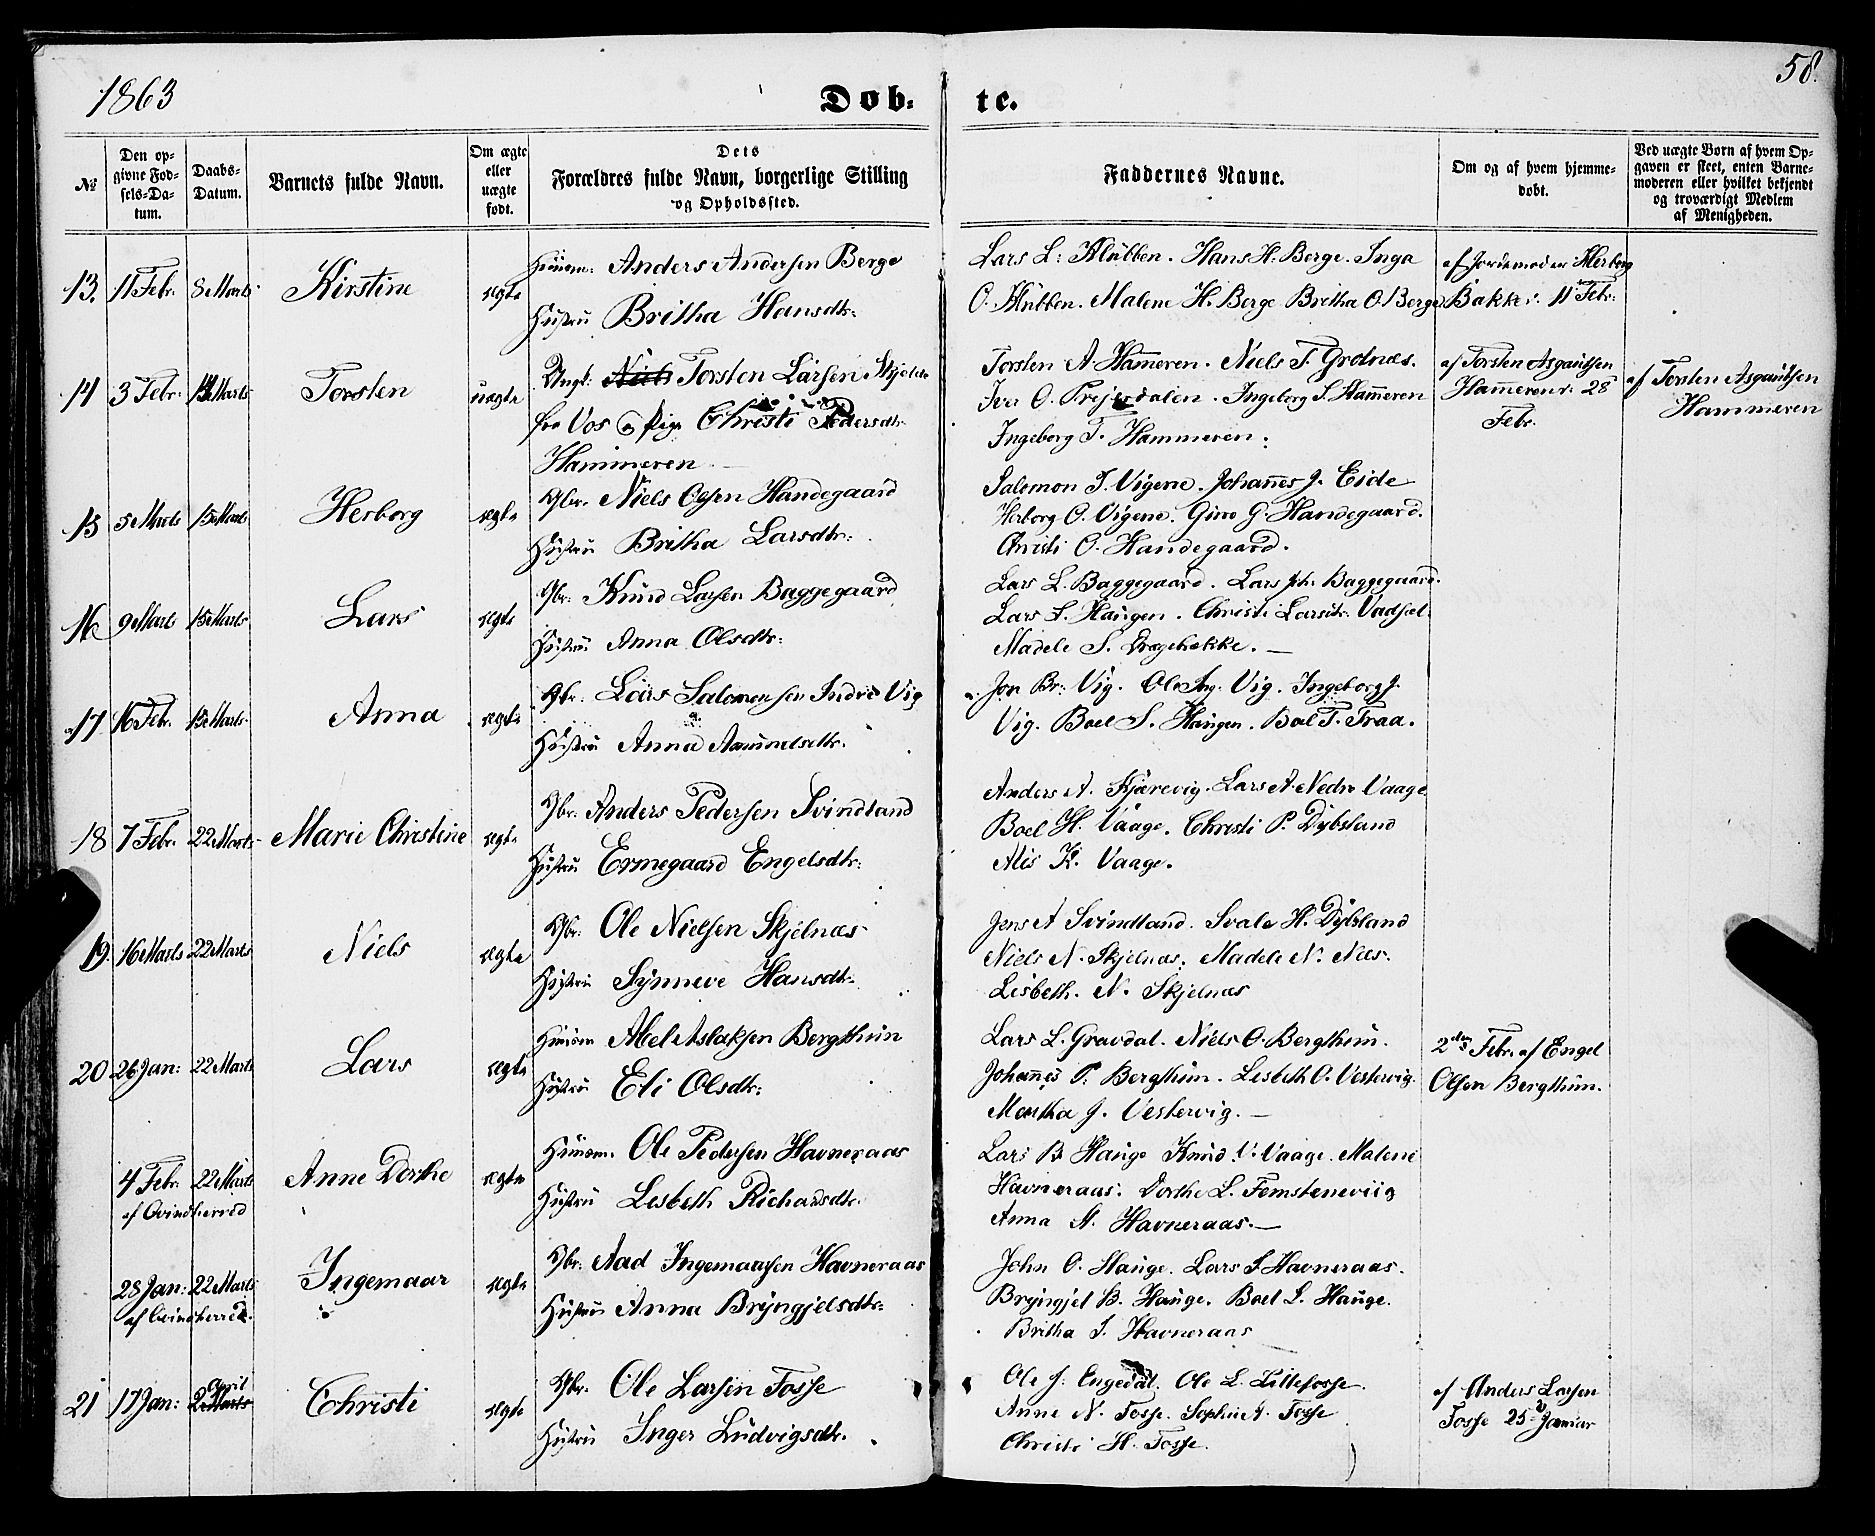 1863
58.
Døb-
te.
№
Den op-
givne Fød-
sels-Da-
tum.
Daabs-
Datum.
Barnets fulde Navn.
Om ægte
eller
uægte
født.
Dets
Forældres fulde Navn, borgerlige Stilling
og Opholdssted.
Faddernes Navne.
Om og af hvem hjemme-
døbt.
Ved uægte Børn af hvem Op-
gaven er skeet, enten Barne-
moderen eller hvilket bekjendt
og troværdigt Medlem
af Menigheden.
13. 11 Febr. 8 Marts Kirstine ægte
Huusm: Anders Andersen Berge
Hustru Britha Hansdtr:
Lars L: Klubben. Hans H. Berge. Inga
O. Klubben. Malene H. Berge Britha O. Berge
af Jordemoder Herborg
Bakke: 11 Febr:
14 3 Febr: Marts Torsten uægte
Ungk: Niels Torsten Larsen Skjelde
fra Vos og Pige Christi Pedersdtr
Hammeren
Torsten A. Hammeren. Niels T. Grotnæs.
Iver O. Trejerdalen. Ingeborg T. Hammeren
Ingeborg T. Hammeren:
af Torsten Asgautsen
Hammeren: 28
Febr.
af Torsten Asgautsen
Hammeren
15 5 Marts 15 Marts Herborg ægte
Gbr. Niels Olsen Handegaard
Hustru Britha Larsdtr:
Salemon T. Vigene. Johannes J. Eide
Herborg O. Vigene. Guro G. Handegaard.
Christi O. Handegaard.
16 9 Marts 15 Marts Lars ægte
Gbr: Knud Larsen Baggegaard
Hustru Anna Olsdtr:
Lars L. Baggegaard. Lars Joh. Baggegaard.
Lars S. Haugen. Christi Larsdtr. Vadsel
Madele S. Dragebække.
17 16 Febr. 15 Marts Anna ægte
Gbr. Lars Salomonsen Indre Vig
Hustru Anna Aamundsdtr.
Jon Br: Vig. Ole Ing. Vig. Ingeborg J.
Vig. Boel S. Haugen. Boel T. Traa.
18 7 Febr. 22 Marts Marie Christine ægte
Gbr. Anders Pedersen Svindland
Hustru Ermegaard Engelsdtr:
Anders A. Kjærevig. Lars A. Nedre Vaage
Boel H. Vaage. Christi P. Dybsland
Alis K. Vaage.
19. 16 Marts 22 Marts Niels ægte
Gbr. Ole Nielsen Skjelnæs
Hustru Synneve Hansdtr.
Jens A Svindland. Svale H. Dybsland
Niels N. Skjelnæs. Madele N. Næs.
Lisbeth. N. Skjelnæs
20 26 Jan: 22 Marts Lars ægte
Huusm Abel Aslaksen Bergthun
Hustru Eli Olsdtr:
Lars L. Gravdal. Niels O. Bergthun.
Johannes P. Bergthun. Lesbeth O. Vestervig.
Martha J. Vestervig.
2den Febr. af Engel
Olsen Bergthun.
4 Febr. 22 Marts Anne Dorthe ægte
af Qvindherred
Huusm. Ole Pedersen Havneraas
Hustru Lesbeth Richardsdtr.
Lars B Hauge Knud V. Vaage. Malene
Havneraas. Dorthe L. Femsteneviig
Anna N. Havneraas.
28 Jan: 22 Marts Ingemaar ægte
af Qvindherred.
Gbr. Aad Ingemaarsen Havneraas
Hustru Anna Bryngjelsdtr:
John O. Hauge. Lars S. Havneraas.
Bryngjel B. Hauge. Boel L. Hauge.
Britha I. Havneraas
21 17 Jan: 2 Marts April Christi ægte
Gbr. Ole Larsen Fosse
Hustru Inger Ludvigsdtr.
Ole J. Engedal. Ole L. Lillefosse.
Anne N. Fosse. Sophie A. Fosse
Christi H. Fosse.
af Anders Larsen
Fosse 25 Januar